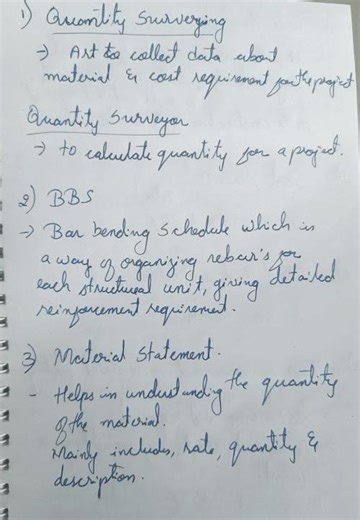 1) Quantity Surveying
→ Art to collect data about
material & cost requirement for the project
Quantity Surveyor
→ to calculate quantity for a project.
2) BBS
→ Bar bending schedule which is
a way of organizing rebar's for
each structural unit, giving detailed
reinforcement requirement.
3) Material Statement.
- Helps in understanding the quantity
of the material.
Mainly includes, rate, quantity &
description.